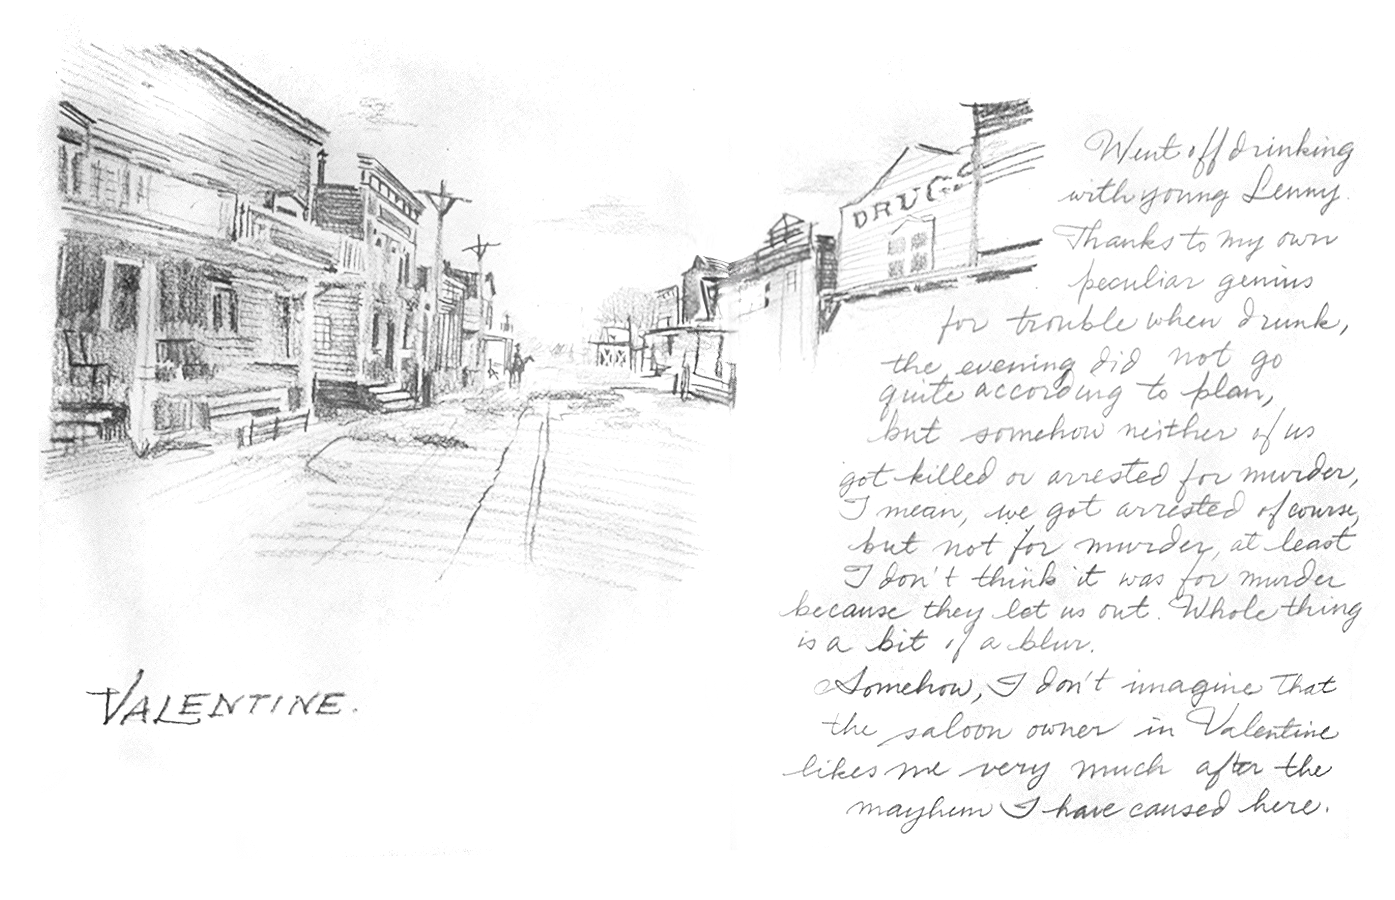 DRUGS
Went off drinking
with young Lenny.
Thanks to my own
peculiar genius
for trouble when drunk,
the evening did not go
quite according to plan,
but somehow neither of us
got killed or arrested for murder,
I mean, we got arrested of course,
but not for murder, at least
I don't think it was for murder
because they let us out. Whole thing
is a bit of a blur.
Somehow, I don't imagine that
the saloon owner in Valentine
likes me very much after the
mayhem I have caused here.
VALENTINE.